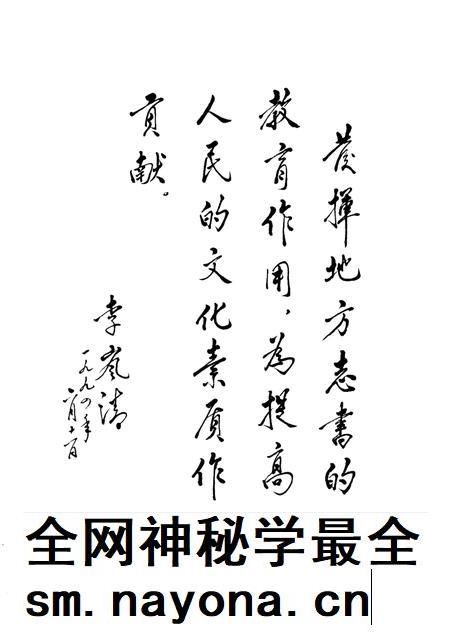 发揮地方志書的
教育作用，為提高
人民的文化素质作
贡献。
李嵐清
一九九四年
六月十一日
全网神秘学最全
sm.nayona.cn